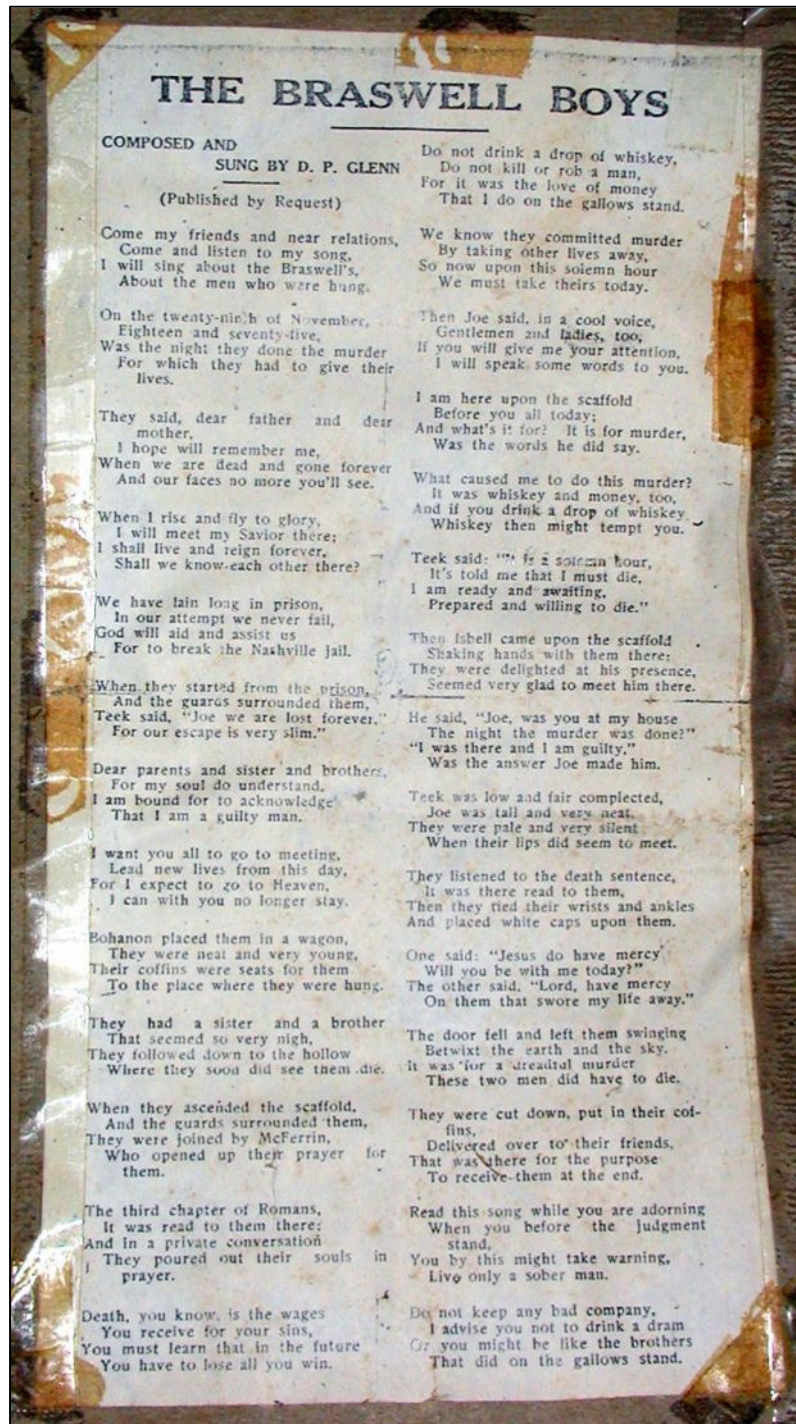 THE BRASWELL BOYS
COMPOSED AND
SUNG BY D. P. GLENN
(Published by Request)
Come my friends and near relations,
Come and listen to my song,
I will sing about the Braswell's.
About the men who were hung.
On the twenty-ninth of November,
Eighteen and seventy-five,
Was the night they done the murder
For which they had to give their
lives.
They said, dear father and dear
mother,
I hope will remember me,
When we are dead and gone forever
And our faces no more you'll see.
When I rise and fly to glory,
I will meet my Savior there;
I shall live and reign forever,
Shall we know each other there?
We have lain long in prison,
In our attempt we never fail,
God will aid and assist us
For to break the Nashville jail.
When they started from the prison,
And the guards surrounded them,
Teek said, "Joe we are lost forever,"
For our escape is very slim."
Dear parents and sister and brothers,
For my soul do understand,
I am bound for to acknowledge
That I am a guilty man.
I want you all to go to meeting,
Lead new lives from this day,
For I expect to go to Heaven,
I can with you no longer stay.
Bohanon placed them in a wagon,
They were neat and very young,
Their coffins were seats for them
To the place where they were hung.
They had a sister and a brother
That seemed so very nigh,
They followed down to the hollow
Where they soon did see them die.
When they ascended the scaffold,
And the guards surrounded them,
They were joined by McFerrin,
Who opened up their prayer for
them.
The third chapter of Romans,
It was read to them there;
And in a private conversation
They poured out their souls in
prayer.
Death, you know, is the wages
You receive for your sins,
You must learn that in the future
You have to lose all you win.
Do not drink a drop of whiskey,
Do not kill or rob a man,
For it was the love of money
That I do on the gallows stand.
We know they committed murder
By taking other lives away,
So now upon this solemn hour
We must take theirs today.
Then Joe said, in a cool voice,
Gentlemen and ladies, too,
If you will give me your attention,
I will speak some words to you.
I am here upon the scaffold
Before you all today;
And what's it for? It is for murder,
Was the words he did say.
What caused me to do this murder?
It was whiskey and money, too,
And if you drink a drop of whiskey
Whiskey then might tempt you.
Teek said: "It is a solemn hour,
It's told me that I must die,
I am ready and awaiting,
Prepared and willing to die."
Then Isbell came upon the scaffold
Shaking hands with them there;
They were delighted at his presence,
Seemed very glad to meet him there.
He said, "Joe, was you at my house
The night the murder was done?"
"I was there and I am guilty,"
Was the answer Joe made him.
Teek was low and fair complected,
Joe was tall and very neat,
They were pale and very silent
When their lips did seem to meet.
They listened to the death sentence,
It was there read to them,
Then they tied their wrists and ankles
And placed white caps upon them.
One said: "Jesus do have mercy
Will you be with me today?"
The other said, "Lord, have mercy
On them that swore my life away."
The door fell and left them swinging
Betwixt the earth and the sky.
It was for a dreadful murder
These two men did have to die.
They were cut down, put in their cof-
fins,
Delivered over to their friends,
That was there for the purpose
To receive them at the end.
Read this song while you are adorning
When you before the judgment
stand,
You by this might take warning,
Live only a sober man.
Do not keep any bad company,
I advise you not to drink a dram
Or you might be like the brothers
That did on the gallows stand.